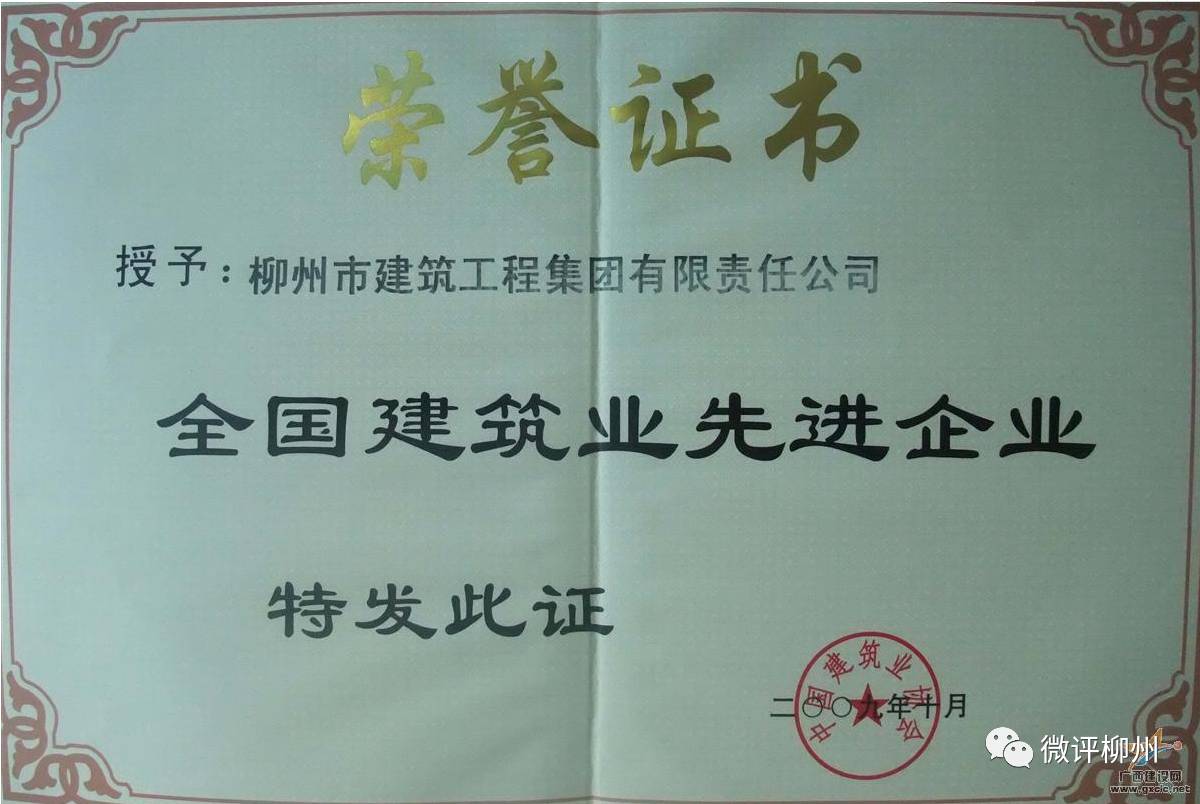 荣誉证书
授予：柳州市建筑工程集团有限责任公司
全国建筑业先进企业
特发此证
中国建筑业协会
二〇〇九年十月
微评柳州
广西建设网
www.gxcic.net